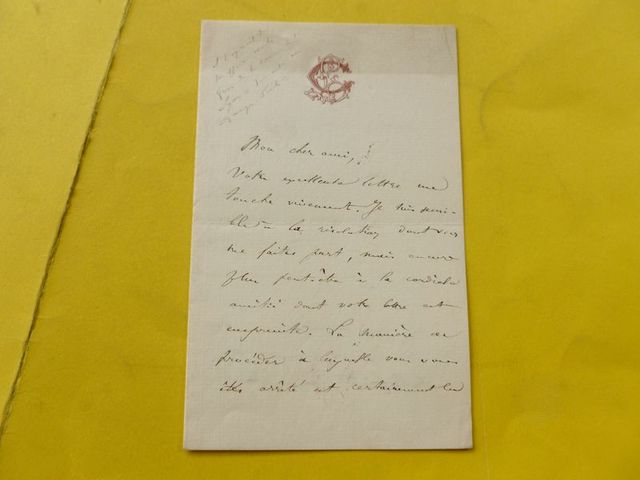 Mon cher ami,
Votre excellente lettre me
touche vivement. Je suis sensi-
ble à la résolution dont vous
me faites part, mais encore
plus peut-être à la cordiale
amitié dont votre lettre est
empreinte. La manière de
procéder à laquelle vous vous
êtes arrêté est certainement la